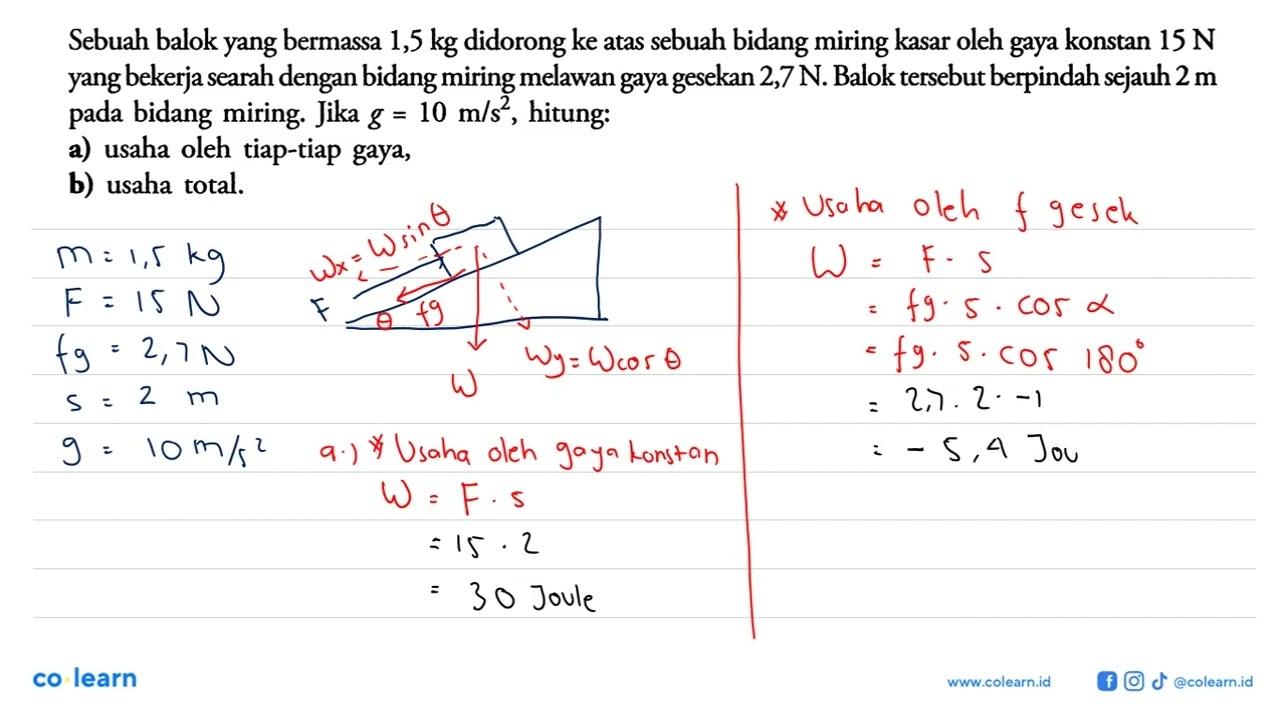 Sebuah balok yang bermassa 1,5 kg didorong ke atas sebuah bidang miring kasar oleh gaya konstan 15 N
yang bekerja searah dengan bidang miring melawan gaya gesekan 2,7 N. Balok tersebut berpindah sejauh 2 m
pada bidang miring. Jika g = 10 m/s², hitung:
a) usaha oleh tiap-tiap gaya,
b) usaha total.
m = 1,5 kg
F = 15 N
fg = 2,7 N
s = 2 m
g = 10 m/s²
Wx = W sin θ
F
θ
fg
W
Wy = W cos θ
a.) * Usaha oleh gaya konstan
W = F . s
= 15 . 2
= 30 Joule
* Usaha oleh f gesek
W = F . s
= fg . s . cos α
= fg . s . cos 180°
= 2,7 . 2 . -1
= - 5,4 Jou
co learn
www.colearn.id
@colearn.id